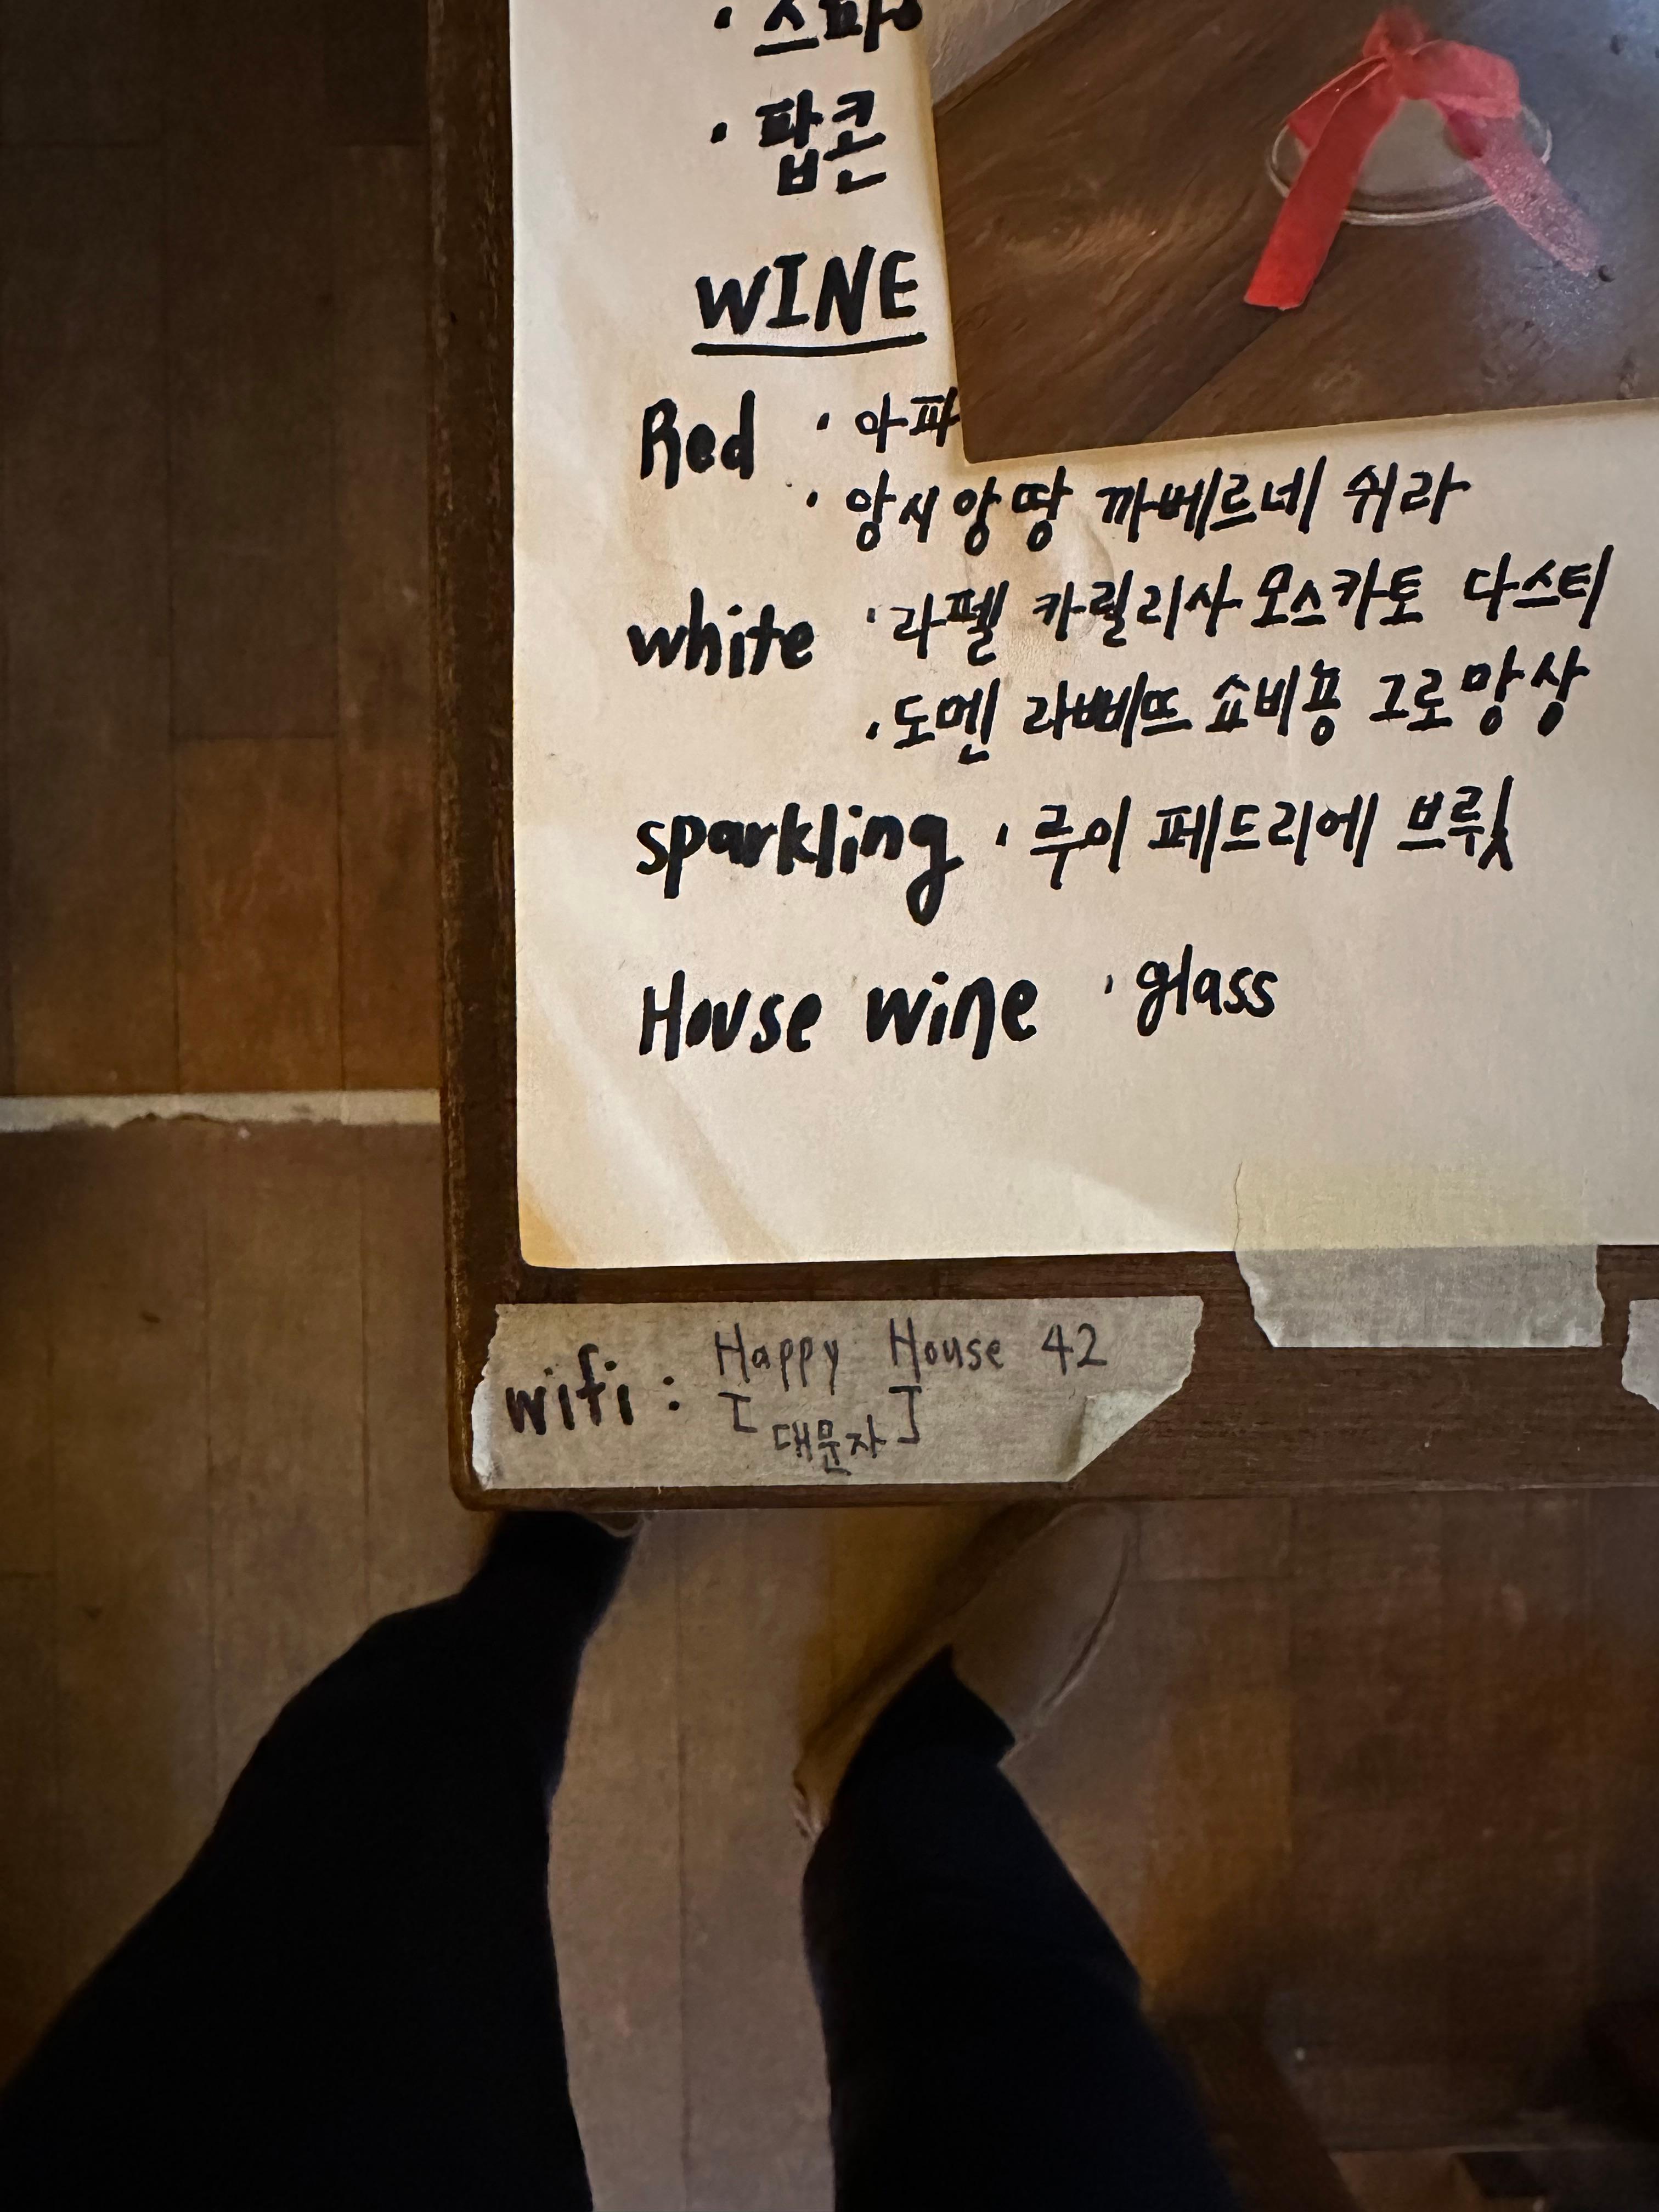 · 팝콘
WINE
Red · 아파
· 앙시앙땅 까베르네 쉬라
white · 라펠 카릴리사 모스카토 다스티
· 도멘 라뻬뜨 쇼비뇽 그로망상
sparkling · 루이 페드리에 브뤼
House wine · glass
wifi : Happy House 42
[대문자]